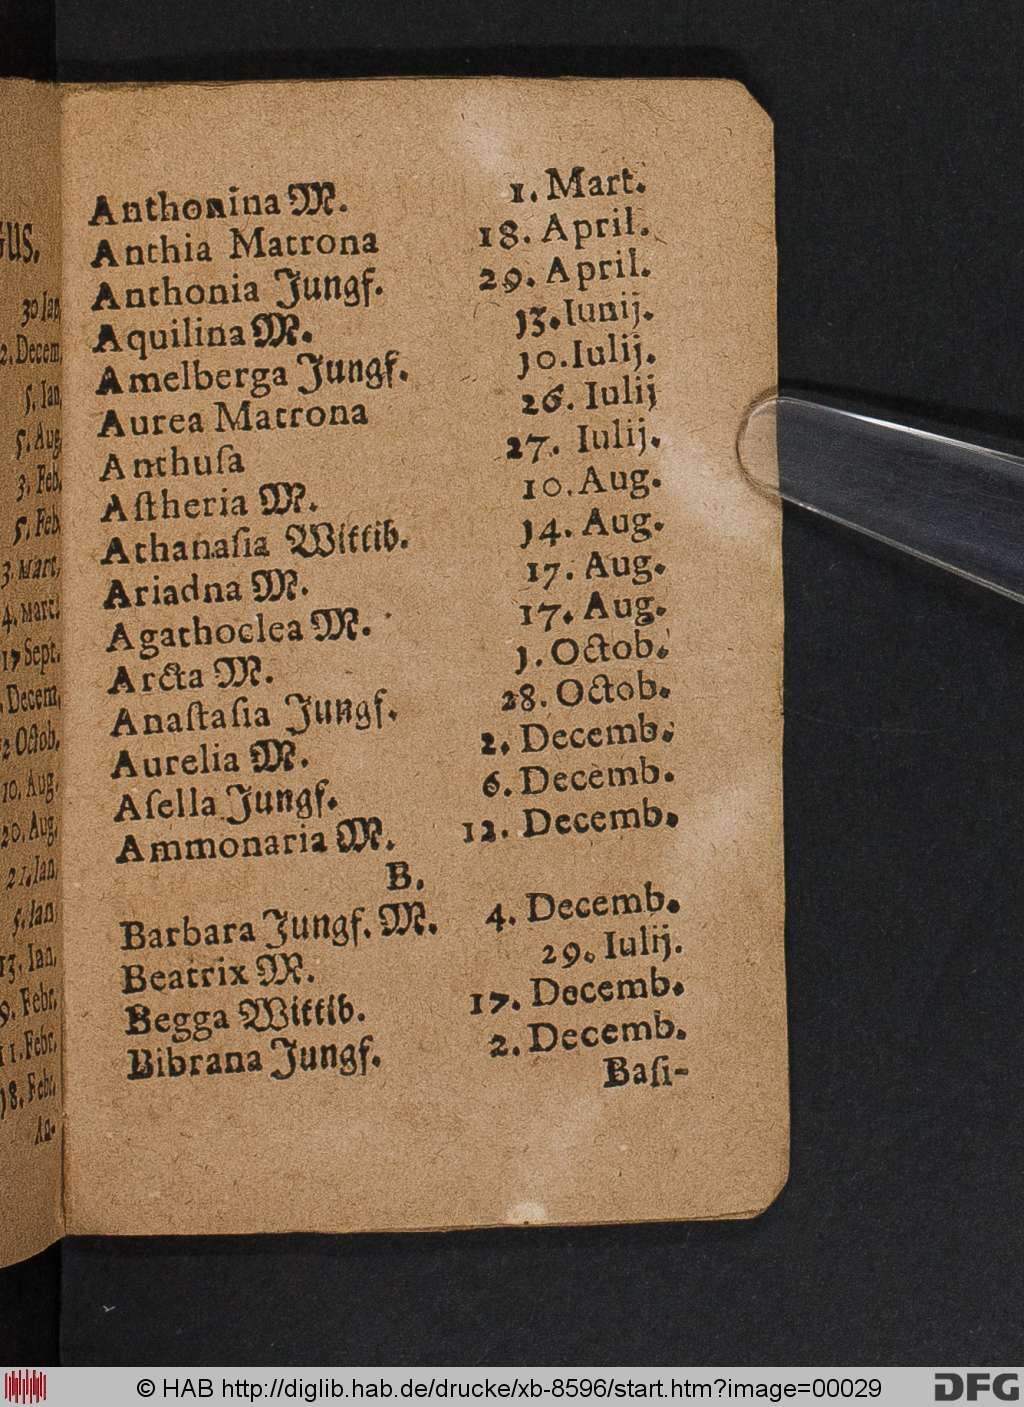 us.
30 Ian
2. Decem
5. Ian
5. Aug
3. Feb.
5. Feb
3. Mart.
4. Mart.
17 Sept.
. Decem.
2 Octob.
10. Aug.
20. Aug.
21. Ian.
5. Ian.
13. Ian.
9. Febr.
11. Febr.
18. Febr.
An-
Anthonina M. 1. Mart.
Anthia Matrona 18. April.
Anthonia Jungf. 29. April.
Aquilina M. 13. Iunij.
Amelberga Jungf. 10. Iulij.
Aurea Matrona 26. Iulij
Anthuſa 27. Iulij.
Aſtheria M. 10. Aug.
Athanaſia Wittib. 14. Aug.
Ariadna M. 17. Aug.
Agathoclea M. 17. Aug.
Arcta M. 1. Octob.
Anaſtaſia Jungf. 28. Octob.
Aurelia M. 2. Decemb.
Aſella Jungf. 6. Decemb.
Ammonaria M. 12. Decemb.
B.
Barbara Jungf. M. 4. Decemb.
Beatrix M. 29. Iulij.
Begga Wittib. 17. Decemb.
Bibrana Jungf. 2. Decemb.
Baſi-
© HAB http://diglib.hab.de/drucke/xb-8596/start.htm?image=00029
DFG